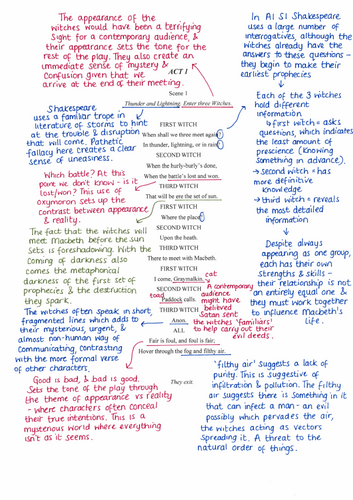 The appearance of the
witches would have been a terrifying
sight for a contemporary audience, &
their appearance sets the tone for the
rest of the play. They also create an
immediate sense of mystery &
confusion given that we
arrive at the end of their meeting.
ACT 1
Scene 1
Thunder and Lightning. Enter three Witches.
Shakespeare
uses a familiar trope in
literature of storms to hint
at the trouble & disruption
that will come. Pathetic
fallacy here creates a clear
sense of uneasiness.
FIRST WITCH
When shall we three meet again?
In thunder, lightning, or in rain?
SECOND WITCH
When the hurly-burly's done,
When the battle's lost and won.
THIRD WITCH
That will be ere the set of sun.
FIRST WITCH
Where the place?
SECOND WITCH
Upon the heath.
THIRD WITCH
There to meet with Macbeth.
FIRST WITCH
I come, Graymalkin.
cat
SECOND WITCH
toad
Paddock calls.
THIRD WITCH
Anon.
ALL
Fair is foul, and foul is fair;
Hover through the fog and filthy air.
They exit
Which battle? At this
point we don't know - is it
lost/won? This use of
oxymoron sets up the
contrast between appearance
& reality.
The fact that the witches will
meet Macbeth before the sun
sets is foreshadowing. With the
coming of darkness also
comes the metaphorical
darkness of the first set of
prophecies & the destruction
they spark.
The witches often speak in short,
fragmented lines which adds to
their mysterious, urgent, &
almost non-human way of
communicating, contrasting
with the more formal verse
of other characters.
Good is bad, & bad is good.
Sets the tone of the play through
the theme of appearance vs reality
- where characters often conceal
their true intentions. This is a
mysterious world where everything
isn't as it seems.
In A1 S1 Shakespeare
uses a large number of
interrogatives, although the
witches already have the
answers to these questions -
they begin to make their
earliest prophecies
Each of the 3 witches
hold different
information
→ first witch = asks
questions, which indicates
the least amount of
prescience (knowing
something in advance).
→ second witch = has
more definitive
knowledge
→ third witch = reveals
the most detailed
information
Despite always
appearing as one group,
each has their own
strengths & skills -
their relationship is not
an entirely equal one &
they must work together
to influence Macbeth's
life.
A contemporary
audience
might have
believed
Satan sent
the witches 'familiars'
to help carry out their
evil deeds.
'filthy air' suggests a lack of
purity. This is suggestive of
infiltration & pollution. The filthy
air suggests there is something in it
that can infect a man - an evil
possibly which pervades the air,
the witches acting as vectors
spreading it. A threat to the
natural order of things.